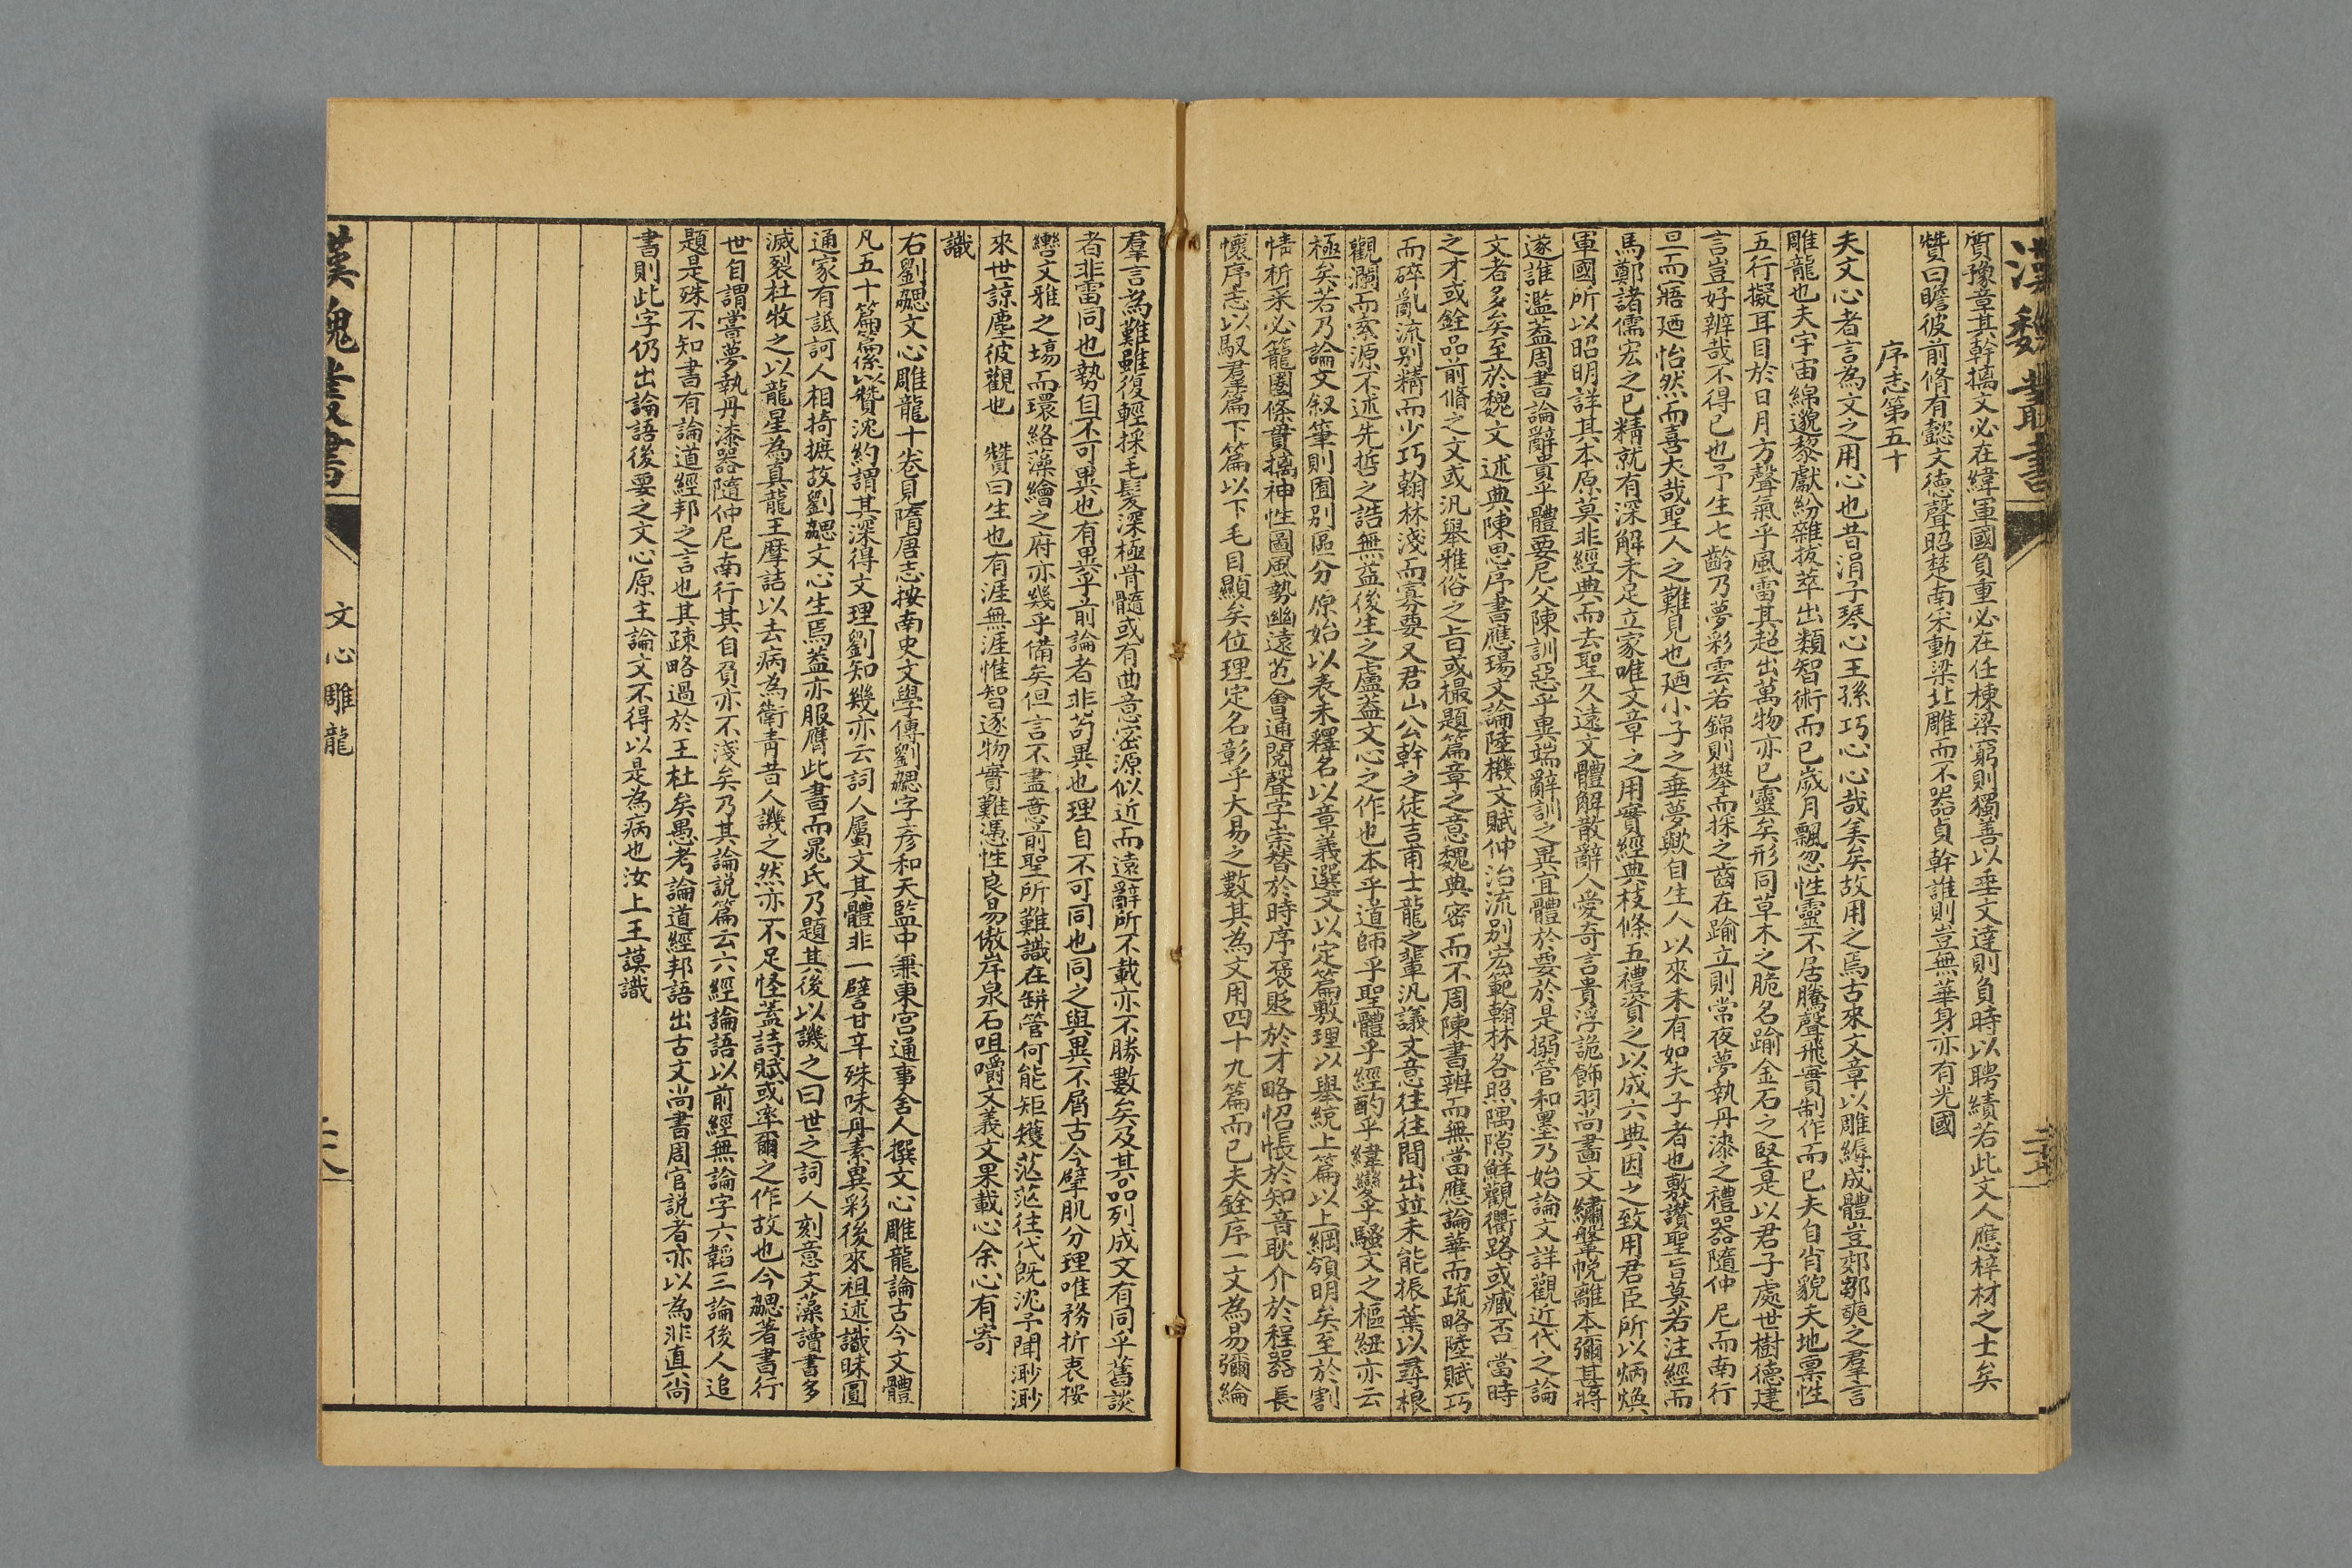 漢魏叢書
質豫章其幹摛文必在緯軍國負重必在任棟梁窮則獨善以垂文達則負時以騁績若此文人應梓材之士矣
贊曰瞻彼前脩有懿文德聲昭楚南采動梁北雕而不器貞幹誰則豈無華身亦有光國
序志第五十
夫文心者言為文之用心也昔涓子琴心王孫巧心心哉美矣故用之焉古來文章以雕縟成體豈邹奭之羣言
雕龍也夫宇宙綿邈黎獻紛雜拔萃出類智術而已歲月飄忽性靈不居騰聲飛實制作而已夫自肖貌天地稟性
五行擬耳目於日月方聲氣乎風雷其超出萬物亦已靈矣形同草木之脆名踰金石之堅是以君子處世樹德建
言豈好辨哉不得已也予生七齡乃夢彩雲若錦則攀而採之齒在踰立則常夜夢執丹漆之禮器隨仲尼而南行
旦而寤廼怡然而喜大哉聖人之難見也廼小子之垂夢歟自生人以來未有如夫子者也敷讚聖旨莫若注經而
馬鄭諸儒宏之已精就有深解未足立家唯文章之用實經典枝條五禮資之以成六典因之致用君臣所以炳煥
軍國所以昭明詳其本原莫非經典而去聖久遠文體解散辭人愛奇言貴浮詭飾羽尚畫文繡鞶帨離本彌甚將
遂訛濫蓋周書論辭貴乎體要尼父陳訓惡乎異端辭訓之異宜體於要於是搦管和墨乃始論文詳觀近代之論
文者多矣至於魏文述典陳思序書應瑒文論陸機文賦仲治流别宏範翰林各照隅隙鮮觀衢路或臧否當時
之才或銓品前脩之文或汎舉雅俗之旨或撮題篇章之意魏典密而不周陳書辨而無當應論華而疏略陸賦巧
而碎亂流别精而少巧翰林淺而寡要又君山公幹之徒吉甫士龍之輩汎議文意往往間出竝未能振葉以尋根
觀瀾而索源不述先哲之誥無益後生之慮蓋文心之作也本乎道師乎聖體乎經酌乎緯變乎騷文之樞紐亦云
極矣若乃論文叙筆則囿别區分原始以表末釋名以章義選文以定篇敷理以舉統上篇以上綱領明矣至於割
情析采必籠圈條貫摛神性圖風勢幽遠苞會通閱聲字崇替於時序褒貶於才略怊悵於知音耿介於程器長
懷序志以馭羣篇下篇以下毛目顯矣位理定名彰乎大易之數其為文用四十九篇而已夫銓序一文為易彌綸
羣言為難雖復輕採毛髮深極骨髓或有曲意密源似近而遠辭所不載亦不勝數矣及其品列成文有同乎舊談
者非雷同也勢自不可異也有異乎前論者非苟異也理自不可同也同之與異不屑古今擘肌分理唯務折衷按
轡文雅之場而環絡藻繪之府亦幾乎備矣但言不盡意前聖所難識在缾管何能矩矱茫茫往代既沈予聞渺渺
來世諒塵彼觀也 贊曰生也有涯無涯惟智逐物實難憑性良易傲岸泉石咀嚼文義文果載心余心有寄
識
右劉勰文心雕龍十卷見隋唐志按南史文學傳劉勰字彦和天監中兼東宮通事舍人撰文心雕龍論古今文體
凡五十篇篇係以贊沈約謂其深得文理劉知幾亦云詞人屬文其體非一譬甘辛殊味丹素異彩後來祖述識昧圓
通家有詆訶人相掎摭故劉勰文心生焉蓋亦服膺此書而晁氏乃題其後以譏之曰世之詞人刻意文藻讀書多
滅裂杜牧之以龍星為真龍王摩詰以去病為衛青昔人譏之然亦不足怪蓋詩賦或率爾之作故也今勰著書行
世自謂嘗夢執丹漆器隨仲尼南行其自負亦不淺矣乃其論說篇云六經論語以前經無論字六韜三論後人追
題是殊不知書有論道經邦之言也其疎略過於王杜矣愚考論道經邦語出古文尚書周官說者亦以為非真尚
書則此字仍出論語後要之文心原主論文不得以是為病也汝上王謨識
漢魏叢書
文心雕龍